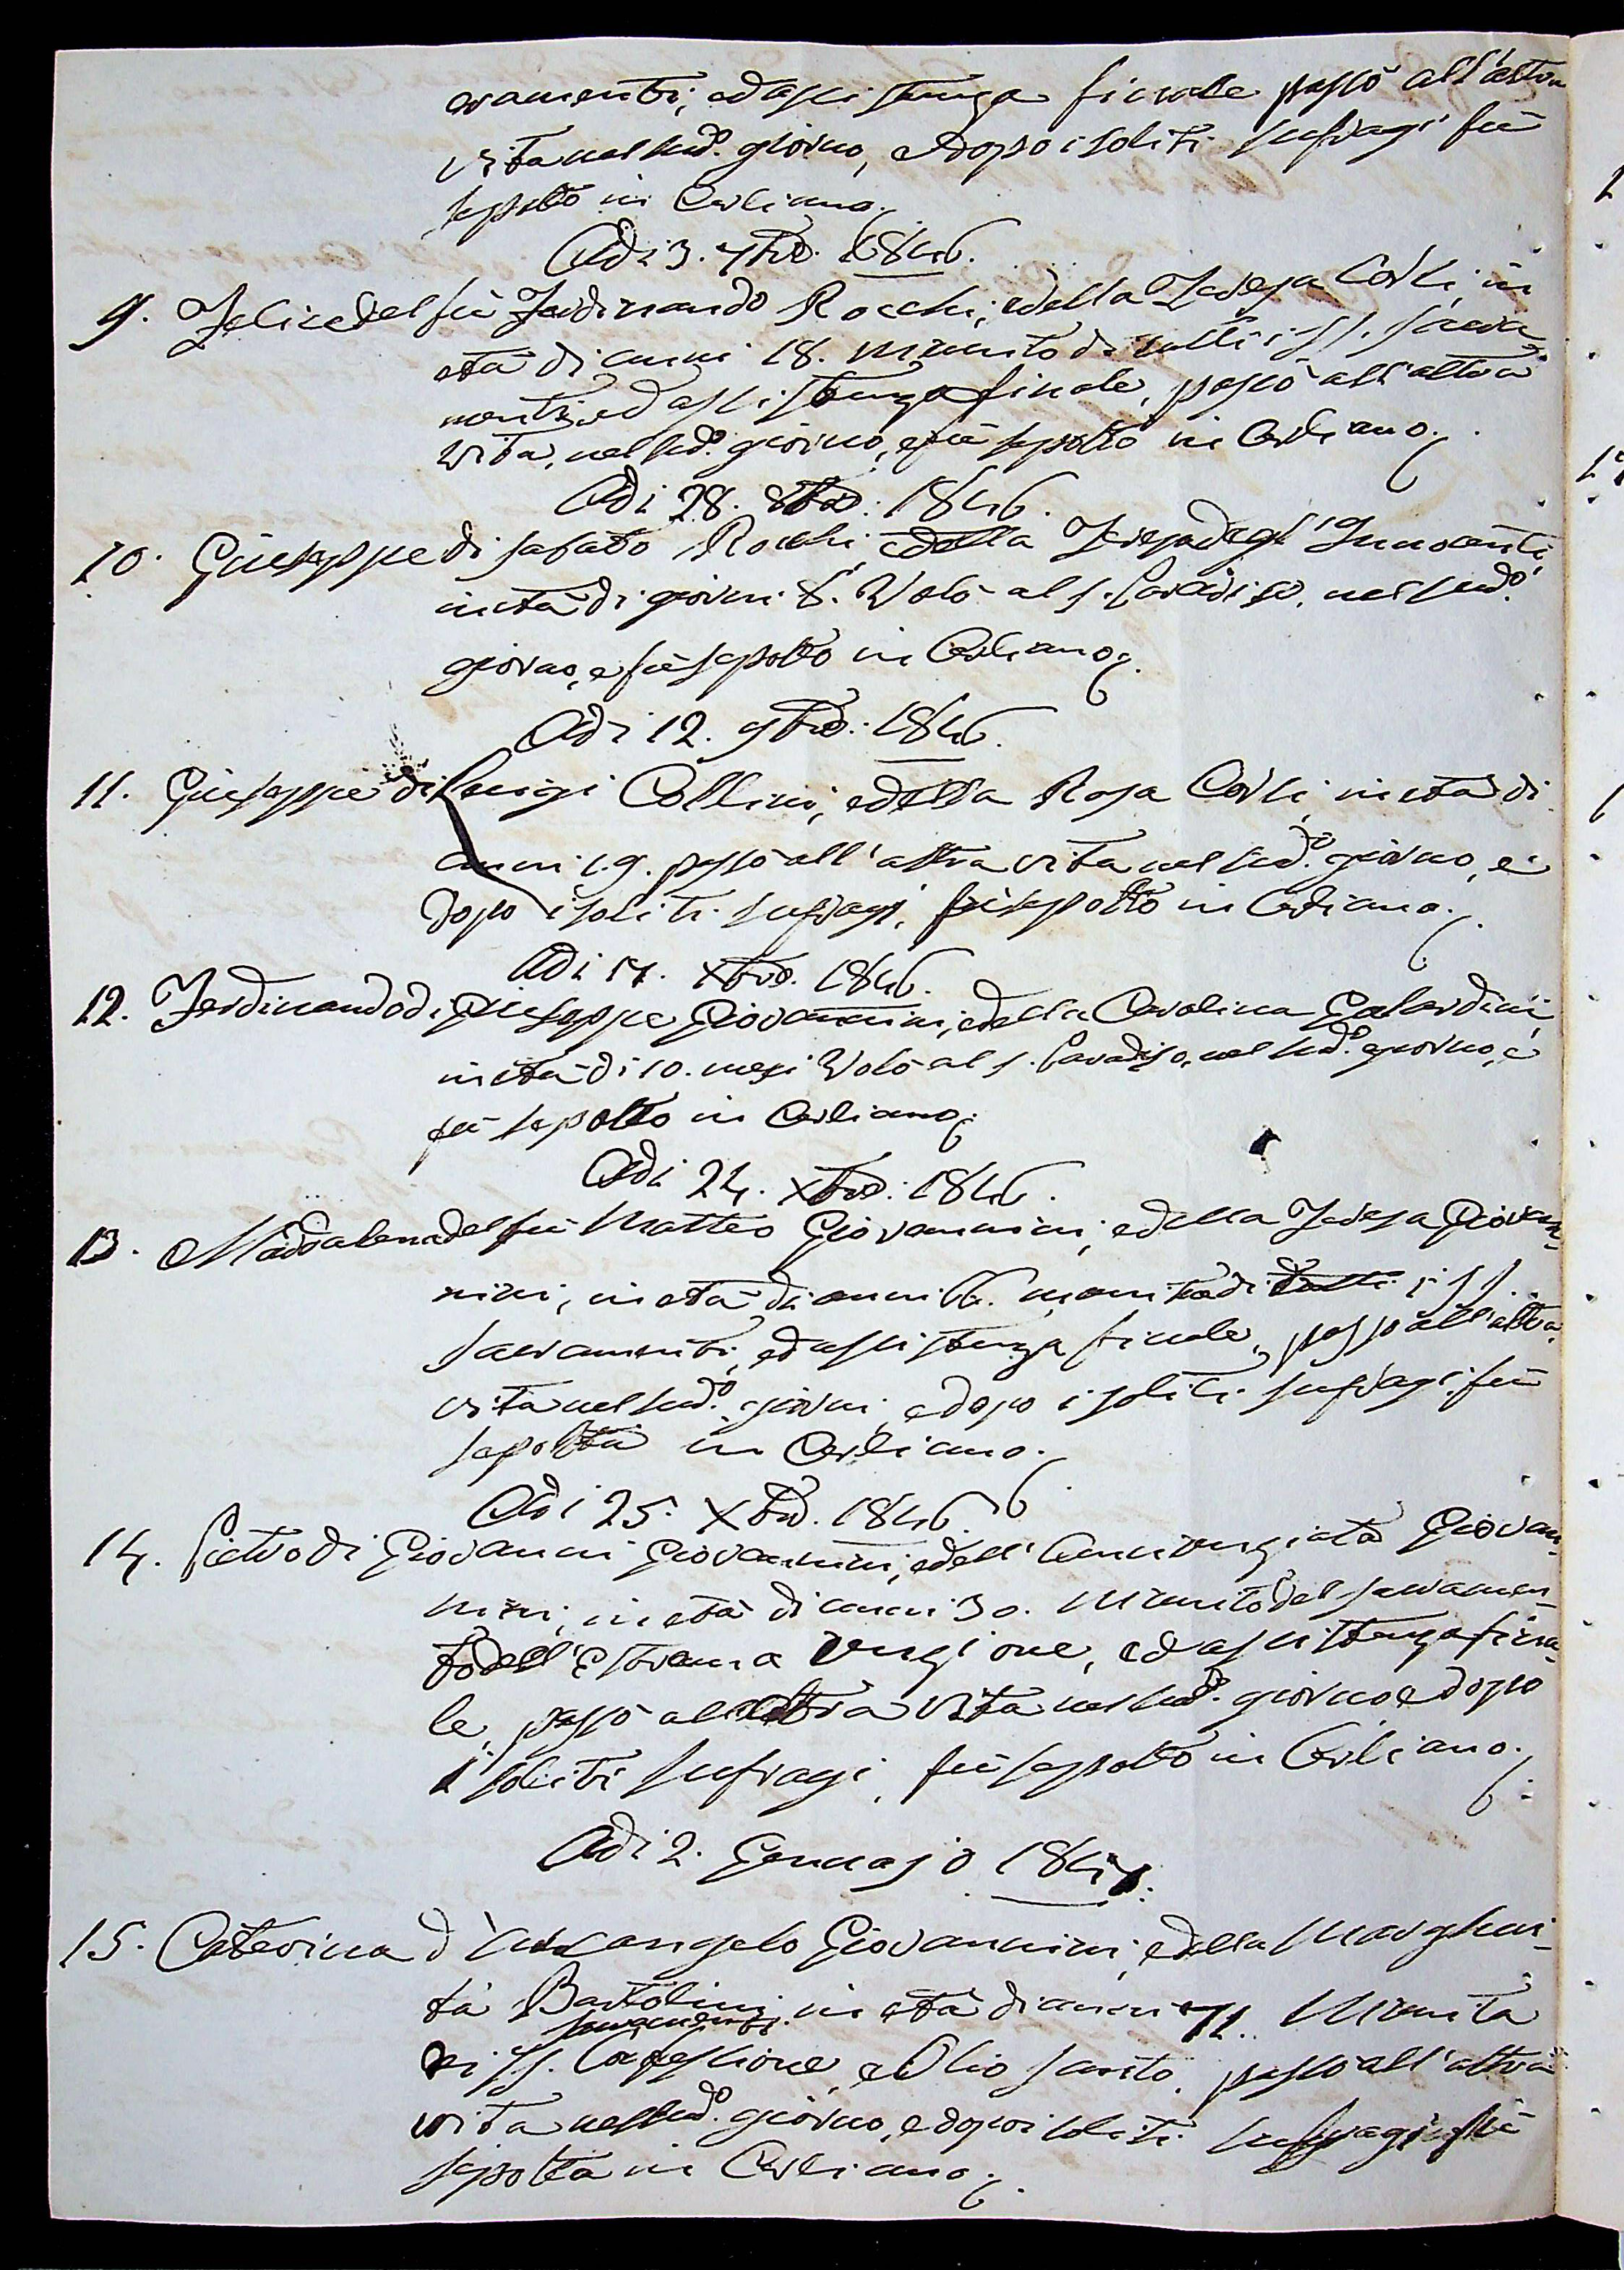 cramenti, ed assistenza finale passò all'altra
vita nel sud.º giorno, e dopo i soliti sufragi fù
sepolto in Cerliano.
Adi 3. 7bre. 1846.
9. Felice del fù Ferdinando Rocchi, e della Teresa Corli, in
età di anni 18. munito di tutti i SS. Sacra-
menti, ed assistenza finale, passò all'altra
vita, nel sud.º giorno, e fù sepolto in Cerliano.
Adi 28. 8bre. 1846.
10. Giuseppe di Sabato Rocchi, e della Teresa degl'Innocenti,
in età di giorni 8. Volò al S. Paradiso, nel sud.º
giorno, e fù sepolto in Cerliano.
Adi 12. 9bre. 1846.
11. Giuseppe di Luigi Collini, e della Rosa Corli, in età di
anni 19. passò all'altra vita nel sud.º giorno, e
dopo i soliti sufragi, fù sepolto in Cerliano.
Adi 17. Xbre. 1846.
12. Ferdinando di Giuseppe Giovannini, e della Carolina Galardini,
in età di 10. mesi Volò al S. Paradiso, nel sud.º giorno, e
fù sepolto in Cerliano.
Adi 24. Xbre. 1846.
13. Maddalena del fù Matteo Giovannini, e della Teresa Giovan-
nini, in età di anni 66. munita di tutti i SS.
Sacramenti, ed assistenza finale, passò all'altra
vita nel sud.º giorni, e dopo i soliti sufragi, fù
sepolta in Cerliano.
Adi 25. Xbre. 1846.
14. Pietro di Giovanni Giovannini, e dell'Annunziata Giovan-
nini, in età di anni 30. Munito del sacramen-
to dell'Estrema Unzione, ed assistenza fina-
le, passò all'altra vita nel sud.º giorno e dopo
i soliti sufragi, fù sepolto in Cerliano.
Adi 2. Gennajo 1847.
15. Caterina d'Arcangelo Giovannini, e della Margheri-
ta Bartolini, in età di anni 71. Munita
Sacramenti
di SS. Confessione, e Olio Santo, passò all'altra
vita nel sud.º giorno, e dopo i soliti sufragi fù
sepolta in Cerliano.